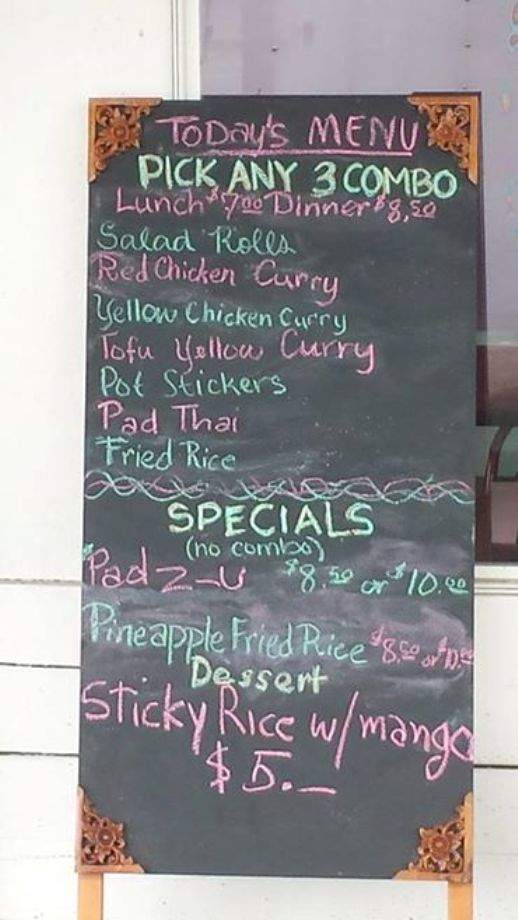 Today's MENU
PICK ANY 3 COMBO
Lunch $7.00 Dinner $8,50
Salad Rolls
Red Chicken Curry
Yellow Chicken Curry
Tofu Yellow Curry
Pot Stickers
Pad Thai
Fried Rice
SPECIALS
(no combo)
Pad Z-U $8.50 or $10.00
Pineapple Fried Rice $8.50 or $10.00
Dessert
Sticky Rice w/mango
$5.—